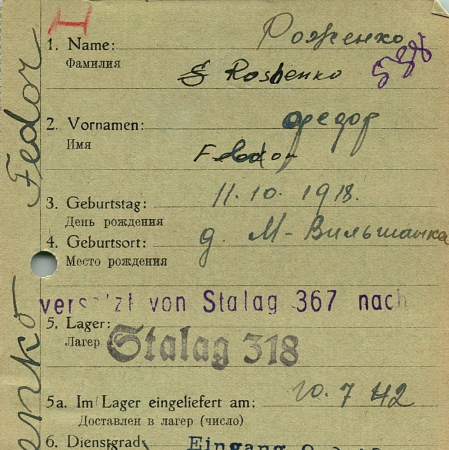 Роженко
1. Name:
Фамилия
Roshenko
538
2. Vornamen:
Федор
Имя
Feodor
3. Geburtstag: 11.10.1918.
День рождения
4. Geburtsort: д. М-Вильшанка
Место рождения
versetzt von Stalag 367 nach
5. Lager:
Лагерь
Stalag 318
5a. Im Lager eingeliefert am: 10.7 42
Доставлен в лагерь (число)
6. Dienstgrad:
Eingang
Fedor
enko